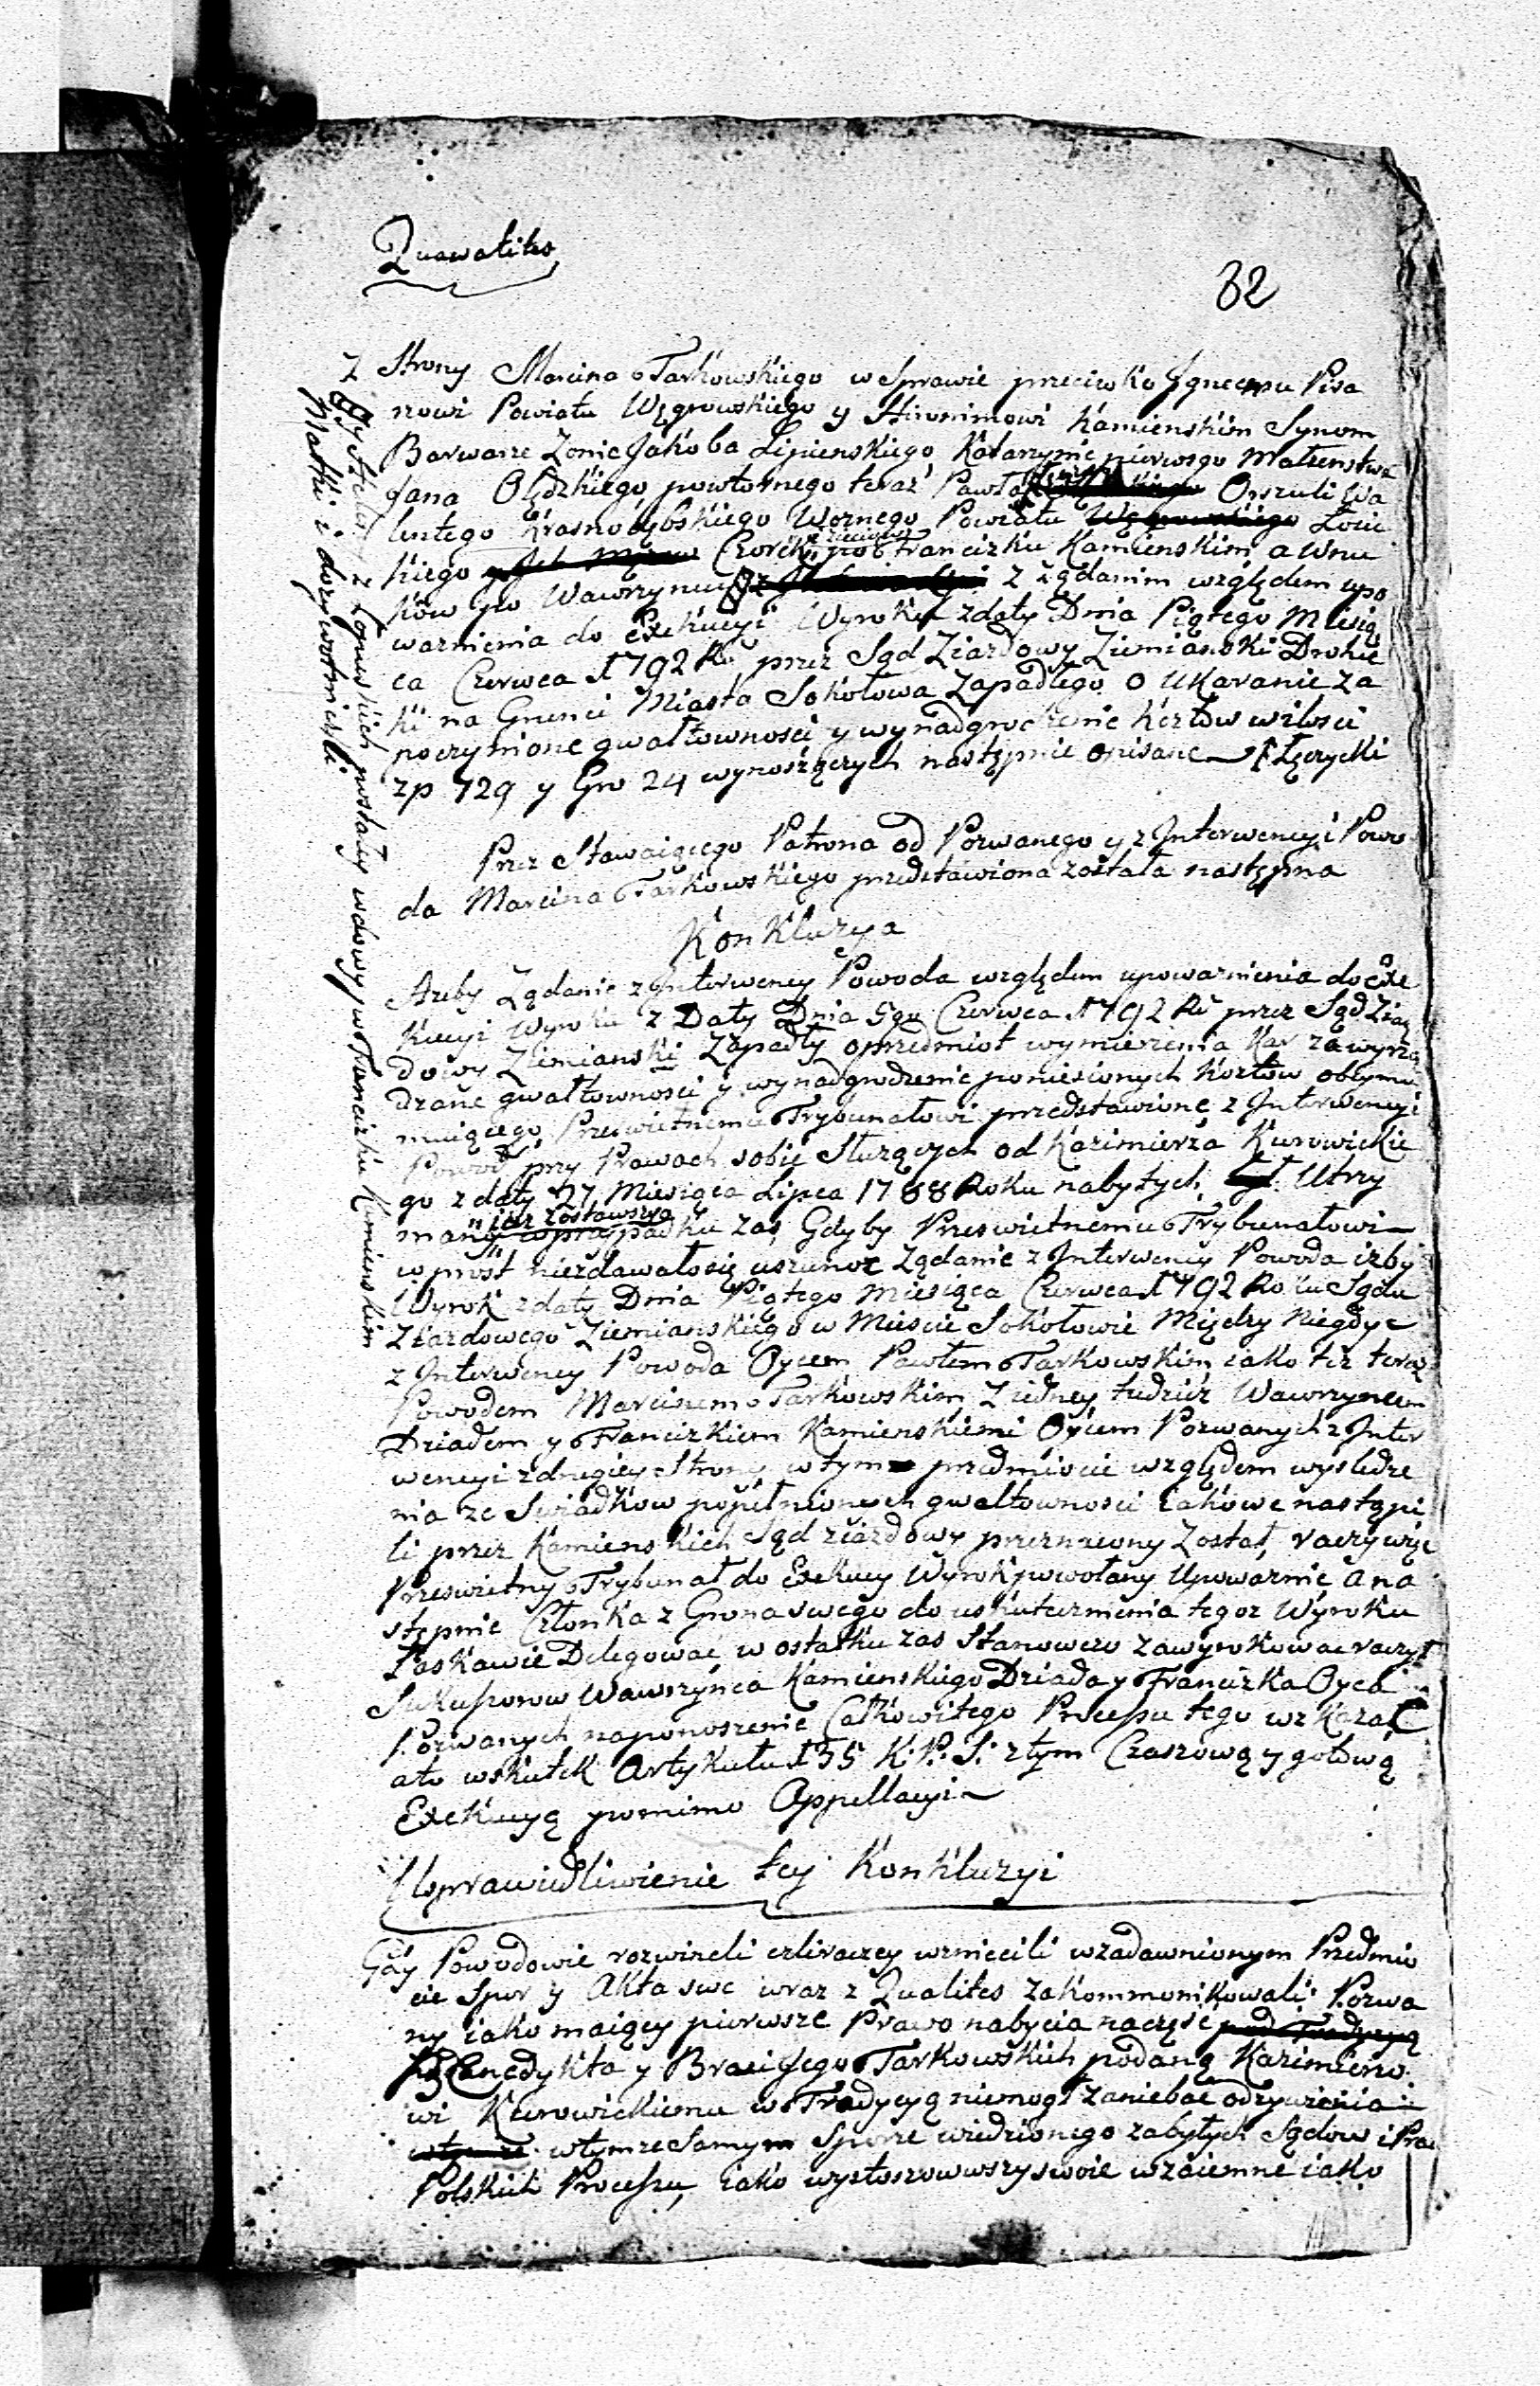 Quawalites
82
Z Strony Marcina Tarkowskiego w Sprawie przeciwko Jgnecemu Pisa
rzowi Powiatu Węgrowskiego y Hironimowi Kamienskim Synom
Barwarze Zonie Jakoba Lipienskiego Katarzynie pierwszego Małzenstwa
Jana Olędzkiego, powtornego teraz Pawła Orszuli Wa
lentego Krasnodębskiego Woznego Powiatu Węgrowskiego Zonie
kiego y Jch Mężow Corek po Franciszku Kamienskim a Wnu
ków po Wawrzyncu z żądanim względem upo
waznienia do Exekucyi Wyroku z daty Dnia Piątego Miesią
ca Czerwca 1792 Ru przez Sąd Ziazdowy Ziemianski Drohic
ki na Gruncie Miasta Sokołowa Zapadłego o Ukaranie za
poczynione gwałtownosci y wynadgrodzenie Kosztow w ilosci
zp 729 y Gro 24 wynoszących następnie opisane
Przez Stawaiącego Patrona od Pozwanego y z Jnterwencyi Powo
da Marcina Tarkowskiego przedstawiona została następna
Konkluzya
Azeby Ządanie z Jnterwency Powoda względem upowaznienia do Exe
kucyi Wyroku z Daty Dnia 5go Czerwca 1792 Ru przez Sąd Ziaz
dowy Ziemianski Zapadły o przedmiot wymierzenia Kar za wyrzą
dzane gwałtownosci y wynadgrodzenie poniesionych Kosztow obeymu
iącego Przeswietnemu Trybunałowi przedstawione z Jnterwencyi
Powod przy Prawach sobie Słuzących od Kazimierza Kurowickie
go z daty 27 Miesiąca Lipca 1788 Roku nabytych Utrzy
many iuz zostawszy w przypadku zas, Gdyby Przeswietnemu Trybunałowi
wprost niezdawało się uznać Ządanie z Jnterwency Powoda izby
Wyrok z daty Dnia Piątego Miesiąca Czerwca 1792 Roku Sądu
Ziazdowego Ziemianskiego w Miescie Sokołowie Między Niegdys
z Jnterwency Powoda Oycem Pawłem Tarkowskim iako tez teraz
Powodem Marcinem Tarkowskim, Z iedney tudziez Wawrzyncem
Dziadem y Franciszkiem Kamienskiemi Oycem Pozwanych z Jnter
wencyi z drugiey Strony w tym przedmiocie względem wysledze
nia ze Swiadków popełnionych gwałtownosci iakowe nastąpi
li przez Kamienskich Sąd ziazdowy przeznaczony Został, raczy więc
Przeswietny Trybunał do Exekucy Wyrok powołany Upowaznic a na
stępnie Członka z Grona swego do uskutecznienia tegoz Wyroku
Łaskawie Delegować, w ostatku zas Stanowczo zawyrokowac raczył
Sukcessorow Wawrzyńca Kamienskiego Dziada y Franciszka Oyca
Pozwanych na ponoszenie Całkowitego Processu tego wskazać
a to w skutek Artykułu 135 K: P: S: z tym Czasową y gotową
Exekucyą pomimo Appellacyi
Usprawiedliwienie tey Konkluzyi
Gdy Powodowie rozwineli czliraczey wzniecili w zadawnionym Przedmio
cie Spor y Akta swe wraz z Qualites zakommonikowali. Pozwa
ny iako maiący pierwsze Prawo nabycia na część pod Tradycyą
Benedykta y Braci Jego Tarkowskich podaną Kazimierzo
wi Kurowickiemu w Tradycyą niemogł zaniebać odzywienia
w tymze Samym Sporze wiedzionego zabytych Sądow i Praw
Polskich Processu, iako wystosowawszy swoie wzaiemne iako
gdy Heleny z Łoniewskich pozostałey wdowy po Franciszku Kamienskim
Matki i dożywotniczki